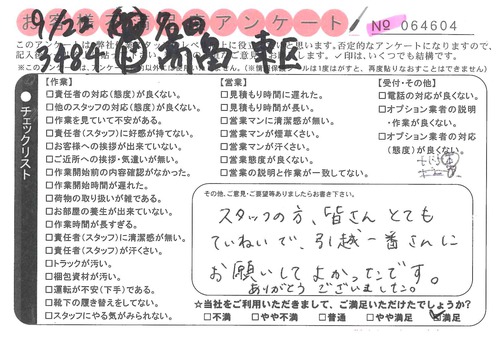 お客様 アンケート
№ 064604
9/22 名田
3484 高品 東区
このアンケートは弊社
否定的なアンケートになりますので、
✓印は、いくつでも結構です。
チェックリスト
【作業】
□責任者の対応(態度)が良くない。
□他のスタッフの対応(態度)が良くない。
□作業を見ていて不安がある。
□責任者(スタッフ)に好感が持てない。
□お客様への挨拶が出来ていない。
□ご近所への挨拶・気遣いが無い。
□作業開始前の内容確認がなかった。
□作業開始時間が遅れた。
□荷物の取り扱いが雑である。
□お部屋の養生が出来ていない。
□作業時間が長すぎる。
□責任者(スタッフ)に清潔感が無い。
□責任者(スタッフ)が汗くさい。
□トラックが汚い。
□梱包資材が汚い。
□運転が不安(下手)である。
□靴下の履き替えをしてない。
□スタッフにやる気がみられない。
【営業】
□見積もり時間に遅れた。
□見積もり時間が長い。
□営業マンに清潔感が無い。
□営業マンが煙草くさい。
□営業マンが汗くさい。
□営業態度が良くない。
□営業の説明と作業が一致してない。
【受付・その他】
□電話の対応が良くない。
□オプション業者の説明・作業が良くない。
□オプション業者の対応(態度)が良くない。
その他、ご意見・ご要望等ありましたらお書き下さい。
スタッフの方、皆さん とても
ていねいで、引越一番さんに
お願いしてよかったです。
ありがとうございました。
☆当社をご利用いただきまして、ご満足いただけたでしょうか?
□不満 □やや不満 □普通 □やや満足 ☑満足